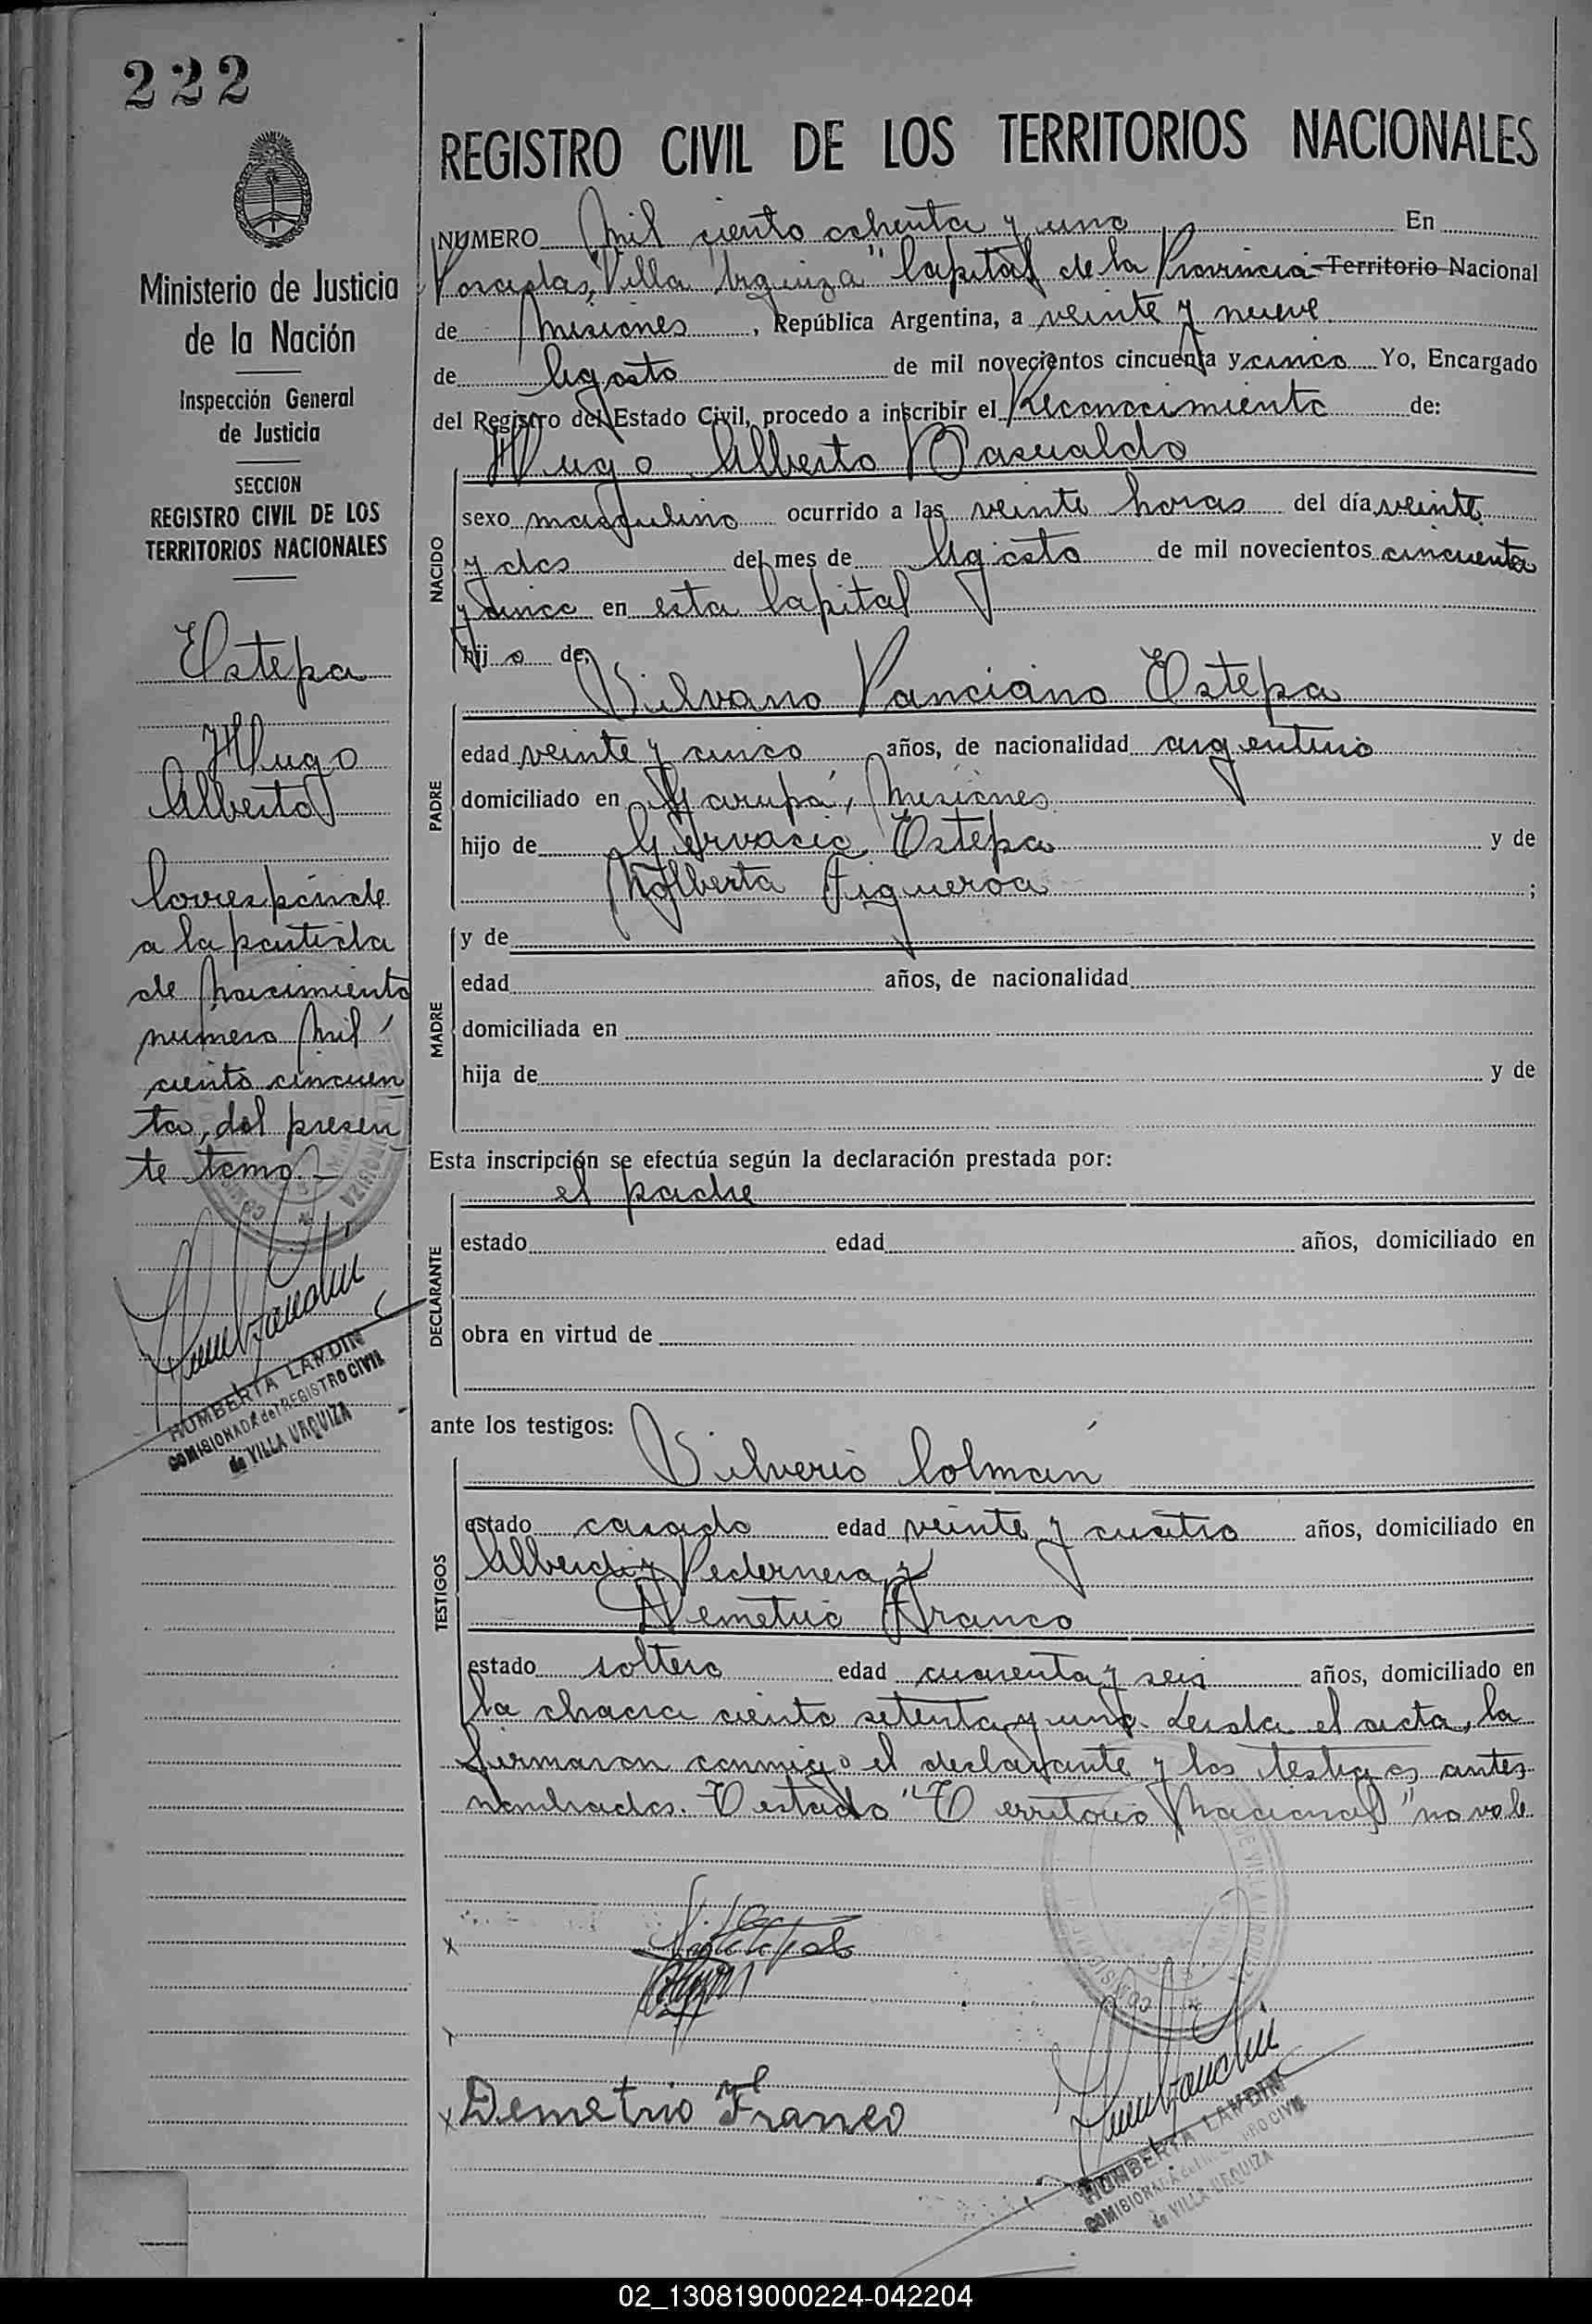 222
Ministerio de Justicia
de la Nación
Inspección General
de Justicia
SECCION
REGISTRO CIVIL DE LOS
TERRITORIOS NACIONALES
Estepa
Hugo
Alberto
Corresponde
a la partida
de nacimiento
número mil
ciento cincuen
ta, del presen
te tomo.
HUMBERTA LANDIN
COMISIONADA del REGISTRO CIVIL
de VILLA URQUIZA
REGISTRO CIVIL DE LOS TERRITORIOS NACIONALES
NUMERO mil ciento ochenta y uno En
Posadas, Villa "Urquiza" Capital de la Provincia Territorio Nacional
de Misiones, República Argentina, a veinte y nueve
de Agosto de mil novecientos cincuenta y cinco Yo, Encargado
del Registro del Estado Civil, procedo a inscribir el Reconocimiento de:
Hugo Alberto Basualdo
NACIDO
sexo masculino ocurrido a las veinte horas del día veinte
y dos del mes de Agosto de mil novecientos cincuenta
y cinco en esta Capital
hijo de:
PADRE
Silvano Ponciano Estepa
edad veinte y cinco años, de nacionalidad argentino
domiciliado en Garupá, Misiones
hijo de Gervacio Estepa y de
Nolberta Figueroa ;
MADRE
y de
edad años, de nacionalidad
domiciliada en
hija de y de
Esta inscripción se efectúa según la declaración prestada por:
DECLARANTE
el padre
estado edad años, domiciliado en
obra en virtud de
ante los testigos:
TESTIGOS
Silverio Colmán
estado casado edad veinte y cuatro años, domiciliado en
Alberdi y Pedernera, y
Demetrio Franco
estado soltero edad cuarenta y seis años, domiciliado en
la chacra ciento setenta y uno. Leida el acta, la
firmaron conmigo el declarante y los testigos antes
nombrados. Testado "Territorio Nacional" no vale
x
x
x Demetrio Franco
HUMBERTA LANDIN
COMISIONADA del REGISTRO CIVIL
de VILLA URQUIZA
02_130819000224-042204